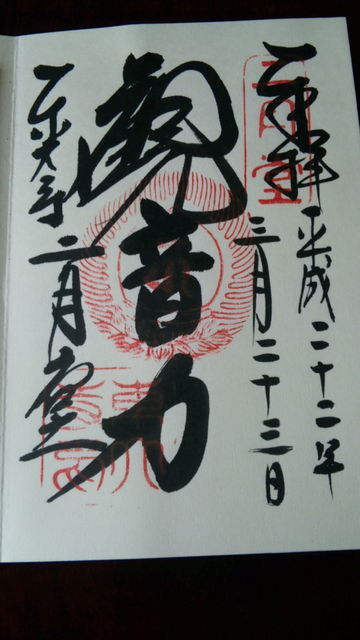 奉拝
平成二十二年
三月二十三日
二月堂
觀音力
東大寺
二月堂